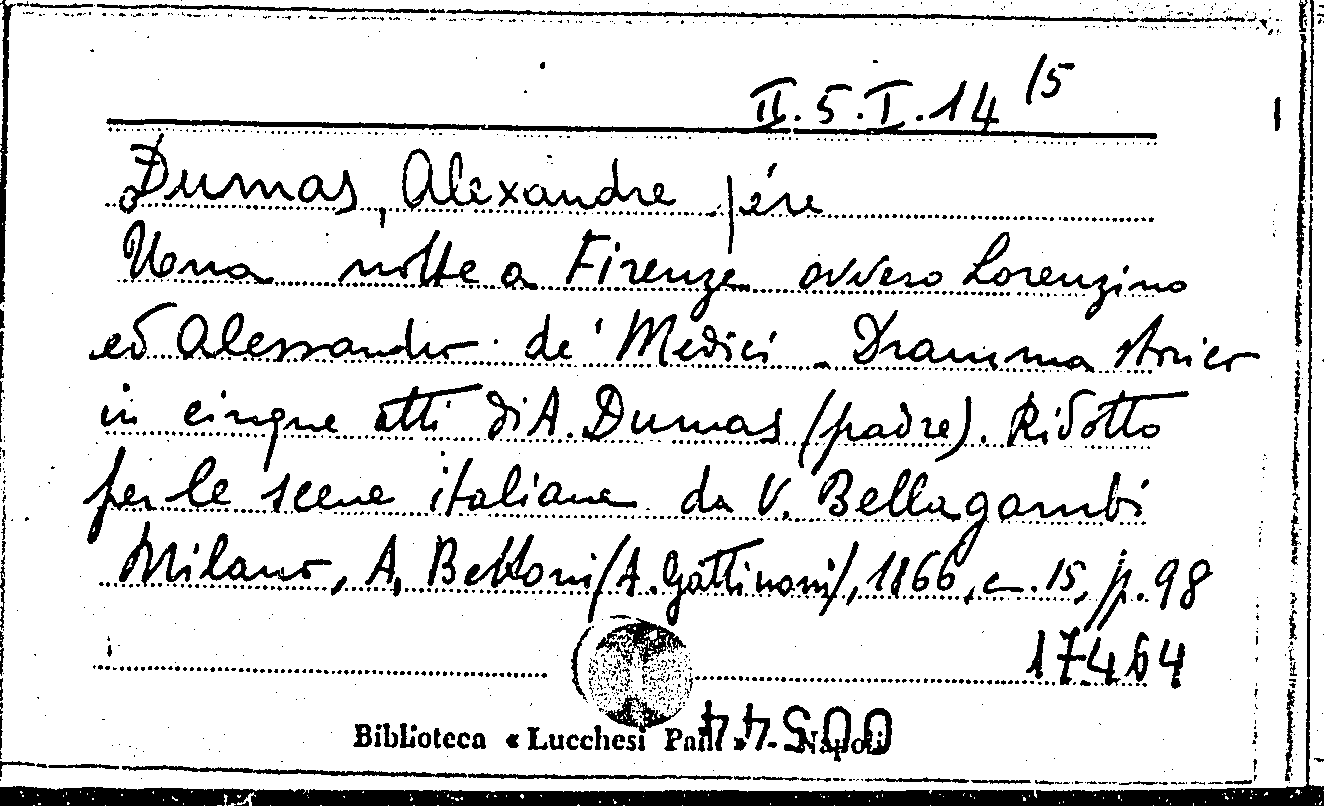 II.5.I.14 15
Dumas, Alexandre père
Una notte a Firenze ovvero Lorenzino
ed Alessandro de' Medici - Dramma storico
in cinque atti di A. Dumas (padre). Ridotto
per le scene italiane da V. Bellagambi
Milano, A. Bettoni /A. Gattinoni/, 1866, c. 15, p. 98
17464
Biblioteca « Lucchesi Palli » - Napoli